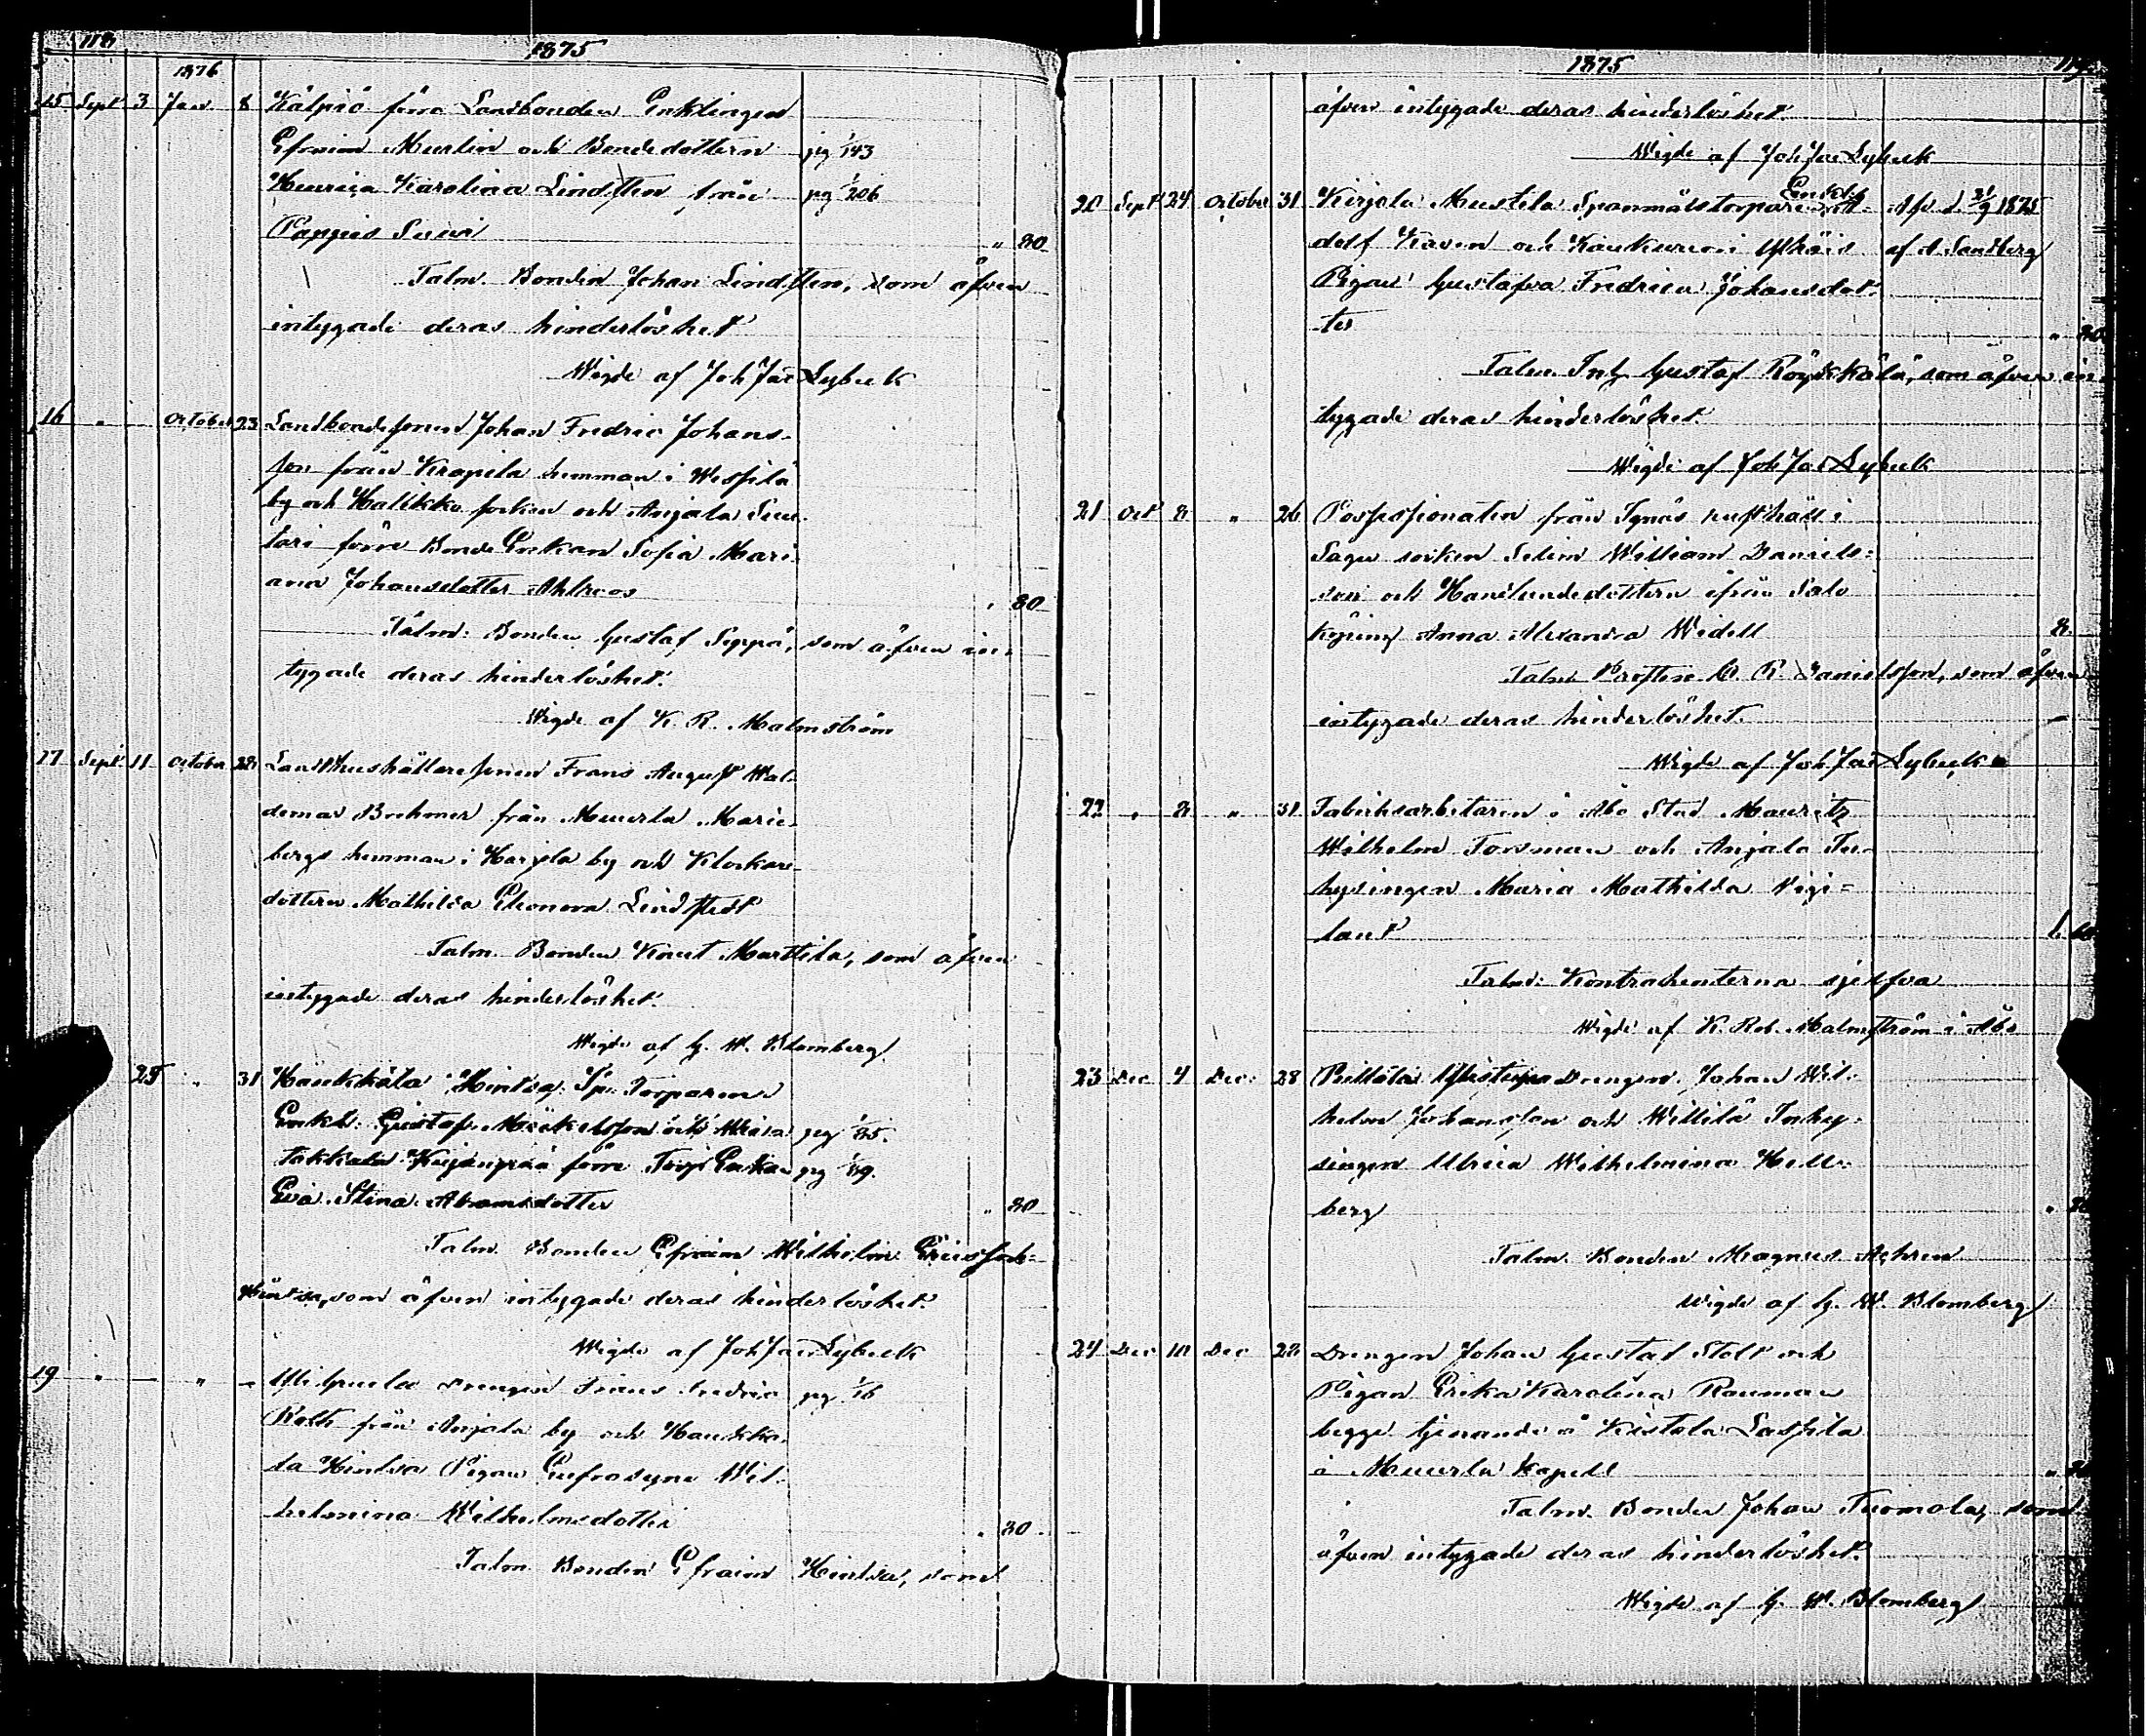 118
1875
1876
15 Sept 3 Jan. 8 förra Landbonden Enklingen
Efraim Murlin och Bondedottern pg 1/143
Henrica Karolina Lindsten från pg 1/206
" 80
Talm. Bonden Johan Lindsten, som äfven
intygade deras hinderlöshet
Wigde af Joh Jac Lybeck
16 " October 23 Landbondesonen Johan Fredric Johans-
son från hemman i
by och Halikko socken och Anjala
förre Bonde Enkan Sofia Mari-
ana Johansdotter Ahlroos " 80
Talm. Bonden Gustaf Seppä, som äfven in-
tygade deras hinderlöshet.
Wigde af K. R. Malmström
17 Sept 11 October 28 Landthushållaresonen Frans August Wal-
demar från Muurla Marie-
bergs hemman i by och Klockare-
dottern Mathilda Eleonora Lindstedt
Talm. Bonden Knut Marttila, som äfven
intygade deras hinderlöshet.
Wigde af G. W. Blomberg
25 " 31 Haukkala Hintsa Sp. Torparen
Enkl. Gustaf Mickelsson och pg 1/85.
förre Torp. Enkan pg 1/89.
Eva Stina Abramsdotter " 80
Talm. Bonden Efraim Wilhelm Ericsson
Hintsa, som äfven intygade deras hinderlöshet.
Wigde af Joh Jac Lybeck
19 " " drengen Frans Fredric pg 1/16
från Anjala by och Haukka-
la Hintsa Pigan Eufrosyne Wil-
helmina Wilhelmsdotter " 80
Talm. Bonden Efraim Hintsa, som
1875
äfven intygade deras hinderlöshet.
Wigde af Joh Jac Lybeck
20 Sept 24 October 31 Kirjala Mustila Spanmålstorpare Enkl. A-
dolf och i
af A. Sandberg
Pigan Gustafva Fredrica Johansdot-
ter
Talm. Gustaf som äfven in-
tygade deras hinderlöshet.
Wigde af Joh Jac Lybeck
21 Oct 8 " 26 Possessionaten från rusthåll i
Sagu socken Selim William Daniels-
son och Handlandedottern ifrån Salo
köping Anna Alexandra Widell 8.
Talm. Danielsson, som äfven
intygade deras hinderlöshet.
Wigde af Joh Jac Lybeck
22 " 8 " 31 Fabriksarbetaren i Åbo Stad Mauritz
Wilhelm Forsman och Anjala In-
hysingen Maria Mathilda Vigi-
lant
Talm. Kontrahenterna sjelfva
Wigde af K. Rob. Malmström i Åbo
23 Dec 4 Dec. 28 Drengen Johan Wil-
helm Johansson och Inhy-
singen Ulrica Wilhelmina Hell-
berg
Talm. Bonden Magnus
Wigde af G. W. Blomberg
24 Dec 10 Dec 28 Drengen Johan Gustaf Stolt och
Pigan Erika Karolina Rauman
begge tjenande å
i Muurla Kapell
Talm. Bonden Johan Tuomola, som
äfven intygade deras hinderlöshet.
Wigde af G. W. Blomberg